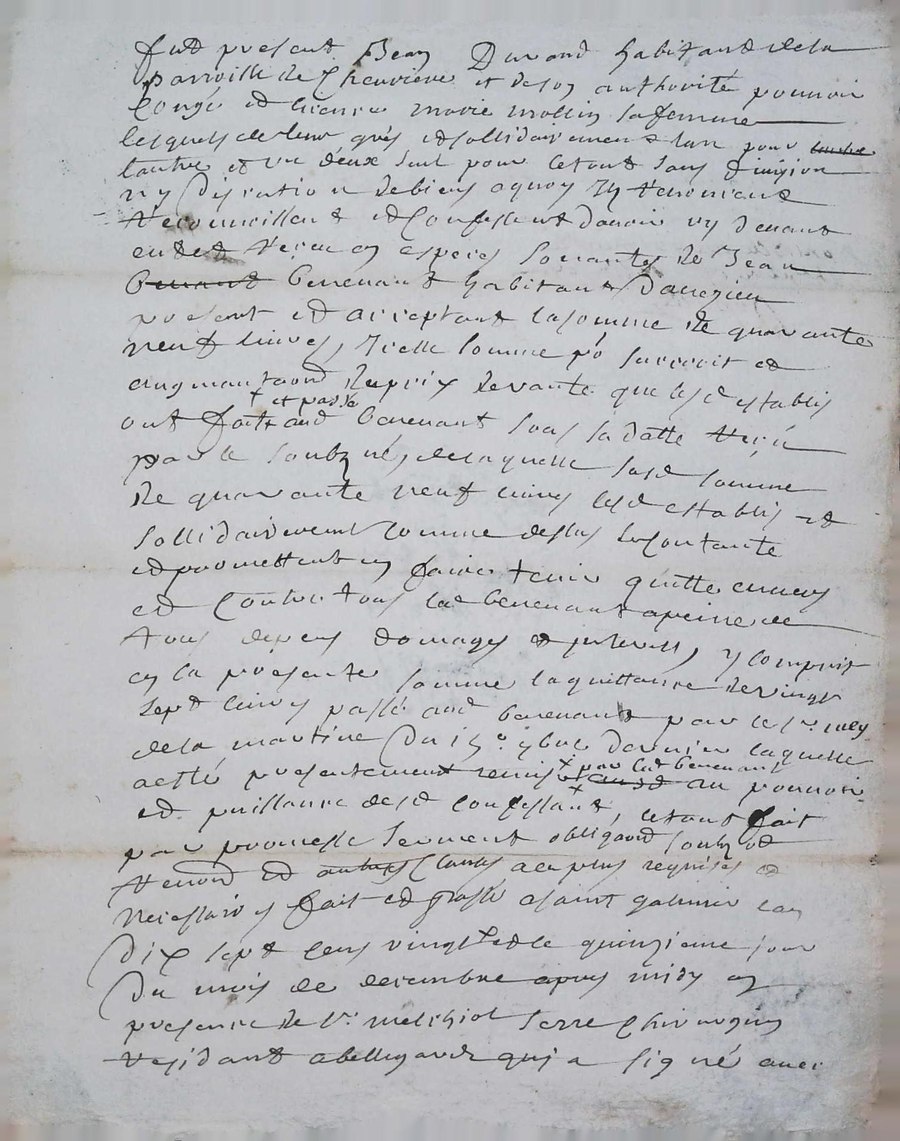 fut present Jean Durand habitant de la
parroisse de Chevrieres et de son authorité pouvoir
Congé et licence marie mollin sa femme
lesquels de leur grés et sollidairement lun pour
lautre et un deux seul pour le tout sans division
ny discution de biens a quoy ils renoncent
recounoissent et Confessent davoir cy devant
eu et receu en especes sonnantes de Jean
benevent habitant
present et acceptant la somme de quarante
neuf livres, icelle somme po surcroit et
augmantaon du prix de vante que lesd establis
+ et passé
ont fait aud benevent sous sa datte receu
par le soubzné, de laquelle susd somme
de quarante neuf livres lesd establis et
sollidairement comme dessus se contante
et promettent en faire tenir quitte envers
et Contre tous led benevent a peine de
tous depens domages et interests, y compris
en la presente somme la quittance de vingt
sept livres passé aud benevent par le sr
de la martine du 15e 9bre dernier laquelle
+ par led benevent
a esté presentement remise aud au pouvoir
et puissance desd confessants, le tout fait
par promesse serment obligaon soubz et
renon et autres Clauses a ce plus requises et
necessaires fait et passé a saint galmier lan
dix sept cens vingt et le quinzieme jour
du mois de decembre apres midy en
presence de sr melchiol serre chirurgien
residant a bellegarde qui a signé avec